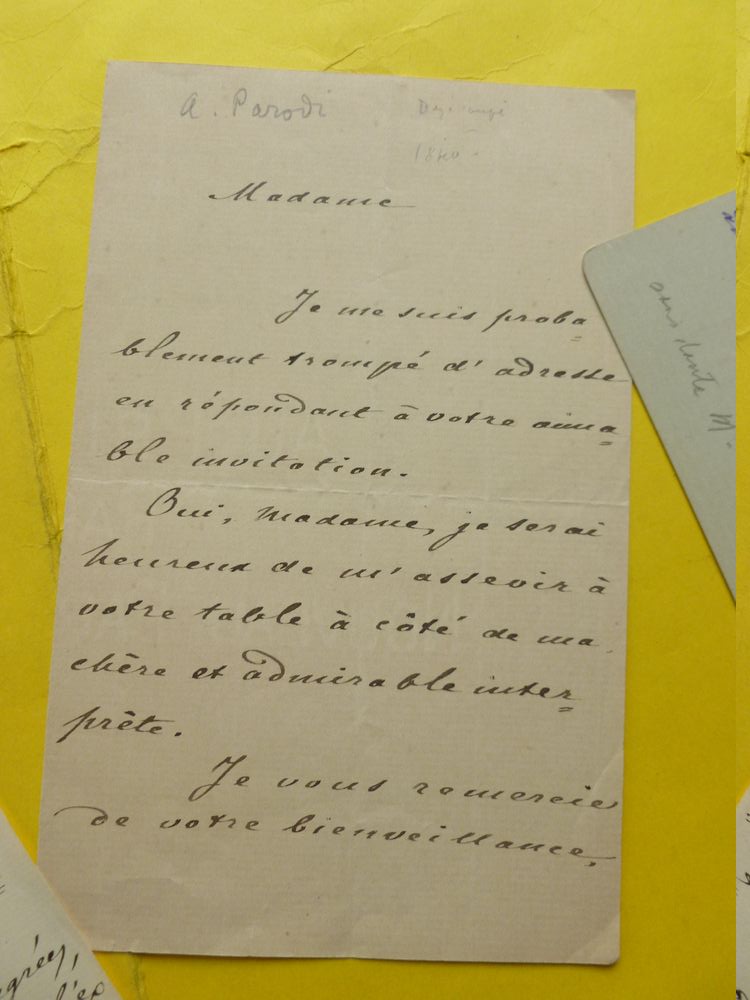 A. Parodi
Madame
Je me suis proba=
blement trompé d'adresse
en répondant à votre aima=
ble invitation.
Oui, madame, je serai
heureux de m'asseoir à
votre table à côté de ma
chère et admirable inter=
prête.
Je vous remercie
de votre bienveillance,